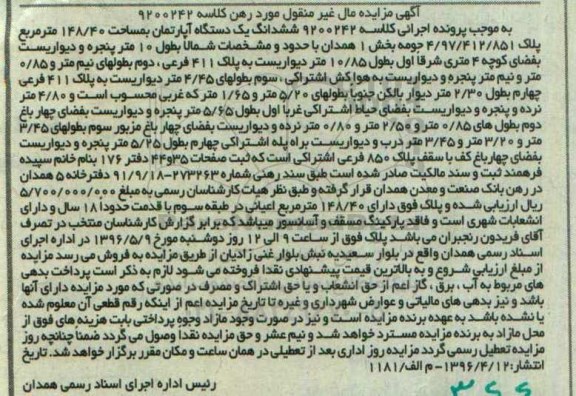 آگهی مزایده مال غیر منقول مورد رهن کلاسه ۹۲۰۰۲۴۲
به موجب پرونده اجرائی کلاسه ۹۲۰۰۲۴۲ ششدانگ یک دستگاه آپارتمان بمساحت ۱۴۸/۴۰ مترمربع
پلاک ۴/۹۷/۴۱۲/۸۵۱ حومه بخش ۱ همدان با حدود و مشخصات شمالاً بطول ۱۰ متر پنجره و دیواریست
بفضای کوچه ۴ متری شرقا اول بطول ۱۰/۸۵ متر دیواریست به پلاک ۴۱۱ فرعی ، دوم بطولهای نیم متر و ۰/۸۵
متر و نیم متر پنجره و دیواریست به هواکش اشتراکی ، سوم بطولهای ۴/۴۵ متر دیواریست به پلاک ۴۱۱ فرعی
چهارم بطول ۲/۳۰ متر دیوار بالکن جنوبا بطولهای ۵/۲۰ متر و ۱/۶۵ متر که غربی محسوب است و ۴/۸۰ متر
نرده و پنجره و دیواریست بفضای حیاط اشتراکی غربا اول بطول ۵/۶۵ متر پنجره و دیواریست بفضای چهار باغ
دوم بطول های ۰/۸۵ متر و ۲/۵۰ متر و ۰/۸۰ متر نرده و دیواریست بفضای چهار باغ مزبور سوم بطولهای ۳/۴۵
متر و ۳/۲۰ متر و ۳/۴۵ متر درب و دیواریست براه پله اشتراکی چهارم بطول ۵/۲۵ متر پنجره و دیواریست
بفضای چهارباغ کف با سقف پلاک ۸۵۰ فرعی اشتراکی است که ثبت صفحات ۳۵و۴۴ دفتر ۱۷۶ بنام خانم سپیده
فرهمند ثبت و سند مالکیت صادر شده است طبق سند رهنی شماره ۲۷۳۲۶۳-۹۱/۹/۱۸ دفترخانه ۵ همدان
در رهن بانک صنعت و معدن همدان قرار گرفته و طبق نظر هیات کارشناسان رسمی به مبلغ ۵/۷۰۰/۰۰۰/۰۰۰
ریال ارزیابی شده و پلاک فوق دارای ۱۴۸/۴۰ مترمربع اعیانی در طبقه سوم با قدمت حدودا ۱۸ سال و دارای
انشعابات شهری است و فاقد پارکینگ مسقف و آسانسور میباشد که برابر گزارش کارشناسان منتخب در تصرف
آقای فریدون رنجبران می باشد پلاک فوق از ساعت ۹ الی ۱۲ روز دوشنبه مورخ ۱۳۹۶/۵/۹ در اداره اجرای
اسناد رسمی همدان واقع در بلوار سعیدیه نبش بلوار غنی زادیان از طریق مزایده به فروش می رسد مزایده
از مبلغ ارزیابی شروع و به بالاترین قیمت پیشنهادی نقدا فروخته می شود لازم به ذکر است پرداخت بدهی
های مربوط به آب ، برق ، گاز اعم از حق انشعاب و یا حق اشتراک و مصرف در صورتی که مورد مزایده دارای آنها
باشد و نیز بدهی های مالیاتی و عوارض شهرداری و غیره تا تاریخ مزایده اعم از اینکه رقم قطعی آن معلوم شده
یا نشده باشد به عهده برنده مزایده است و نیز در صورت وجود مازاد وجوه پرداختی بابت هزینه های فوق از
محل مازاد به برنده مزایده مسترد خواهد شد و نیم عشر و حق مزایده نقدا وصول می گردد ضمنا چنانچه روز
مزایده تعطیل رسمی گردد مزایده روز اداری بعد از تعطیلی در همان ساعت و مکان مقرر برگزار خواهد شد. تاریخ
انتشار: ۱۳۹۶/۴/۱۲- م الف/۱۱۸۱
رئیس اداره اجرای اسناد رسمی همدان